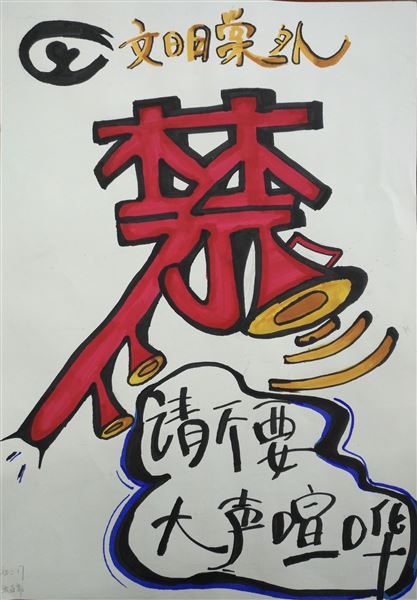 文明棠外
禁
请不要
大声喧哗